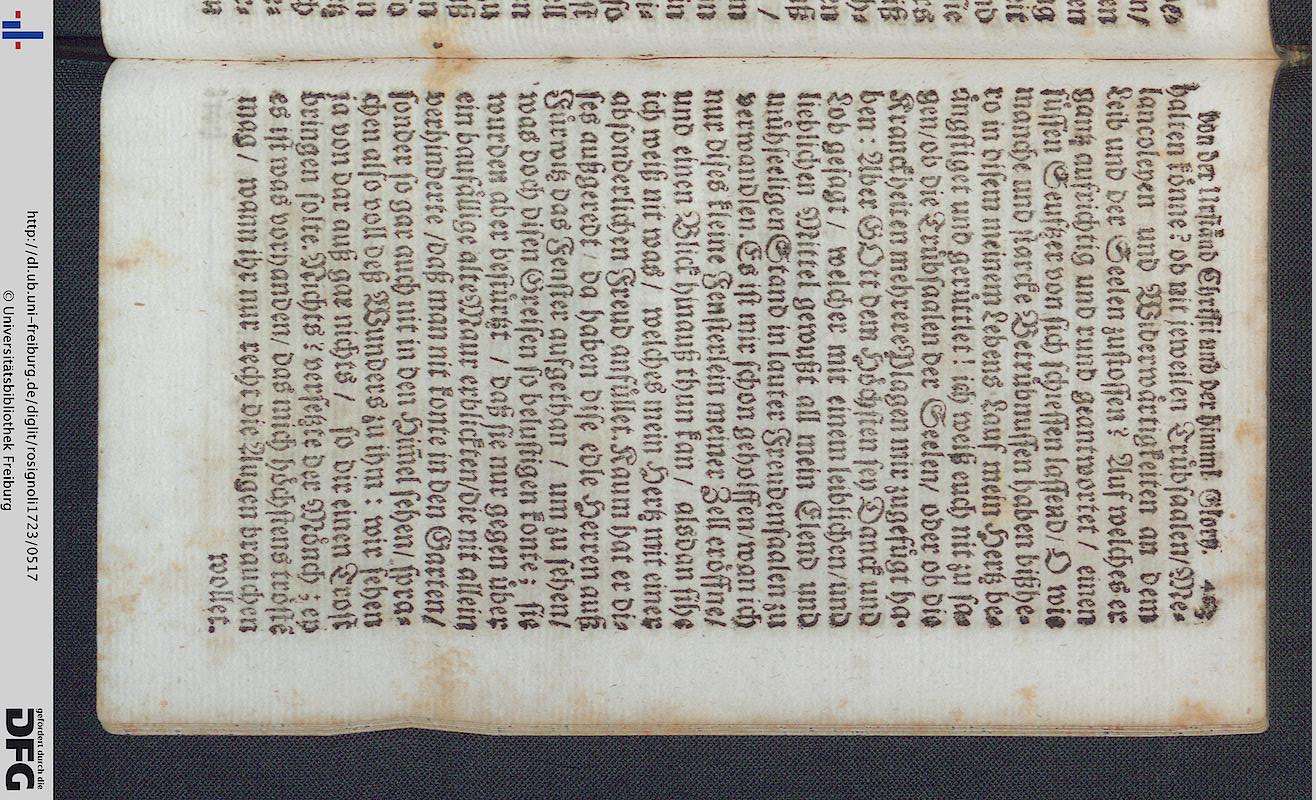 Von der Urständ Christi und der Himml. Glory.
halten könne? ob nit jeweilen Trübsaalen/ Me-
lancoleyen und Widerwärtigkeiten an dem
Leib und der Seelen zustossen? Auf welches er
gantz aufrichtig und rund geantwortet/ einen
süssen Seufzer von sich schiessen lassend/ O wie
manche und starcke Betrübnussen haben bißhe-
ro in disem meinem Lebens-Lauf mein Hertz be-
ängstiget und gerüttlet! ich weiß euch nit zu sa-
gen/ ob die Trübsalen der Seelen/ oder ob die
Kranckheiten mehrere Plagen mir zugefügt ha-
ben: Aber GOtt dem Höchsten sey Danck und
Lob gesagt/ welcher mit einem leblichen/ und
lieblichen Mittel gewust all mein Elend und
mühseeligen Stand in lauter Freudensaalen zu
verwandlen. Es ist mir schon geholffen/ wan ich
nur dises kleine Fensterlen meiner Zell eröffne/
und einen Blick hinauß thun kan/ alsdan sihe
ich weiß nit was/ welches mein Hertz mit einer
absonderlichen Freud anfüllet. Kaum hat er di-
ses außgeredt/ da haben dise edle Herren auß
Fürwitz das Fenster aufgethan/ um zu sehen/
was doch disen Greisen so belustigen könte; sie
wurden aber bestürtzt/ daß sie nur gegen über
ein baufällige alte Maur erblickten/ die nit allein
verhinderte/ daß man nit konte in den Garten/
sonder so gar auch nit in den Him̃el sehen/ spra-
chen also voll deß Wunders zu ihm: wir sehen
ja von dar auß gar nichts/ so dir einen Trost
bringen solte. Nichts? versetzte der Mönch; ey
es ist was vorhanden/ das mich höchstens tröste
mag/ wann ihr nur recht die Augen brauchen
wollet.
http://dl.ub.uni-freiburg.de/diglit/rosignoli1723/0517
© Universitätsbibliothek Freiburg
gefördert durch die
DFG